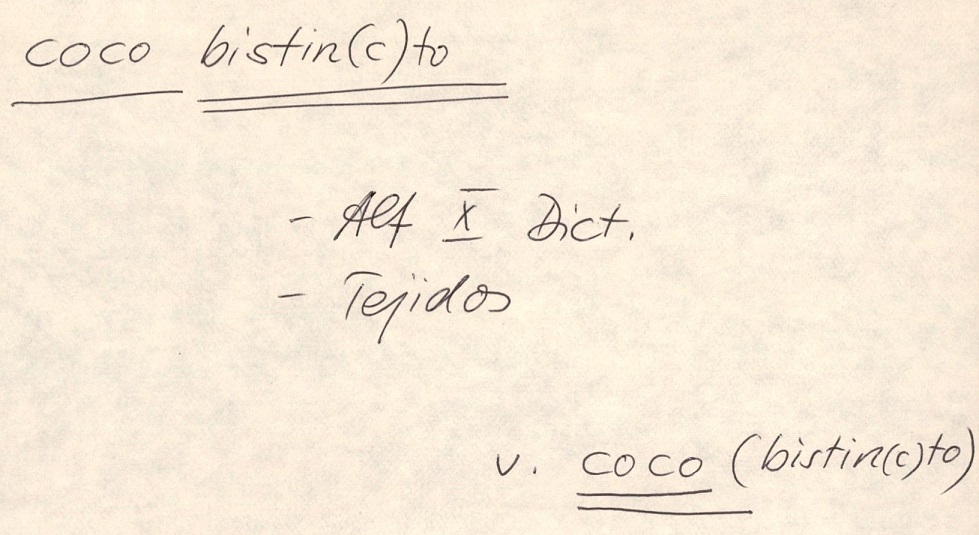 coco bistin(c)to
- Alf X Dict.
- Tejidos
v. coco (bistin(c)to)